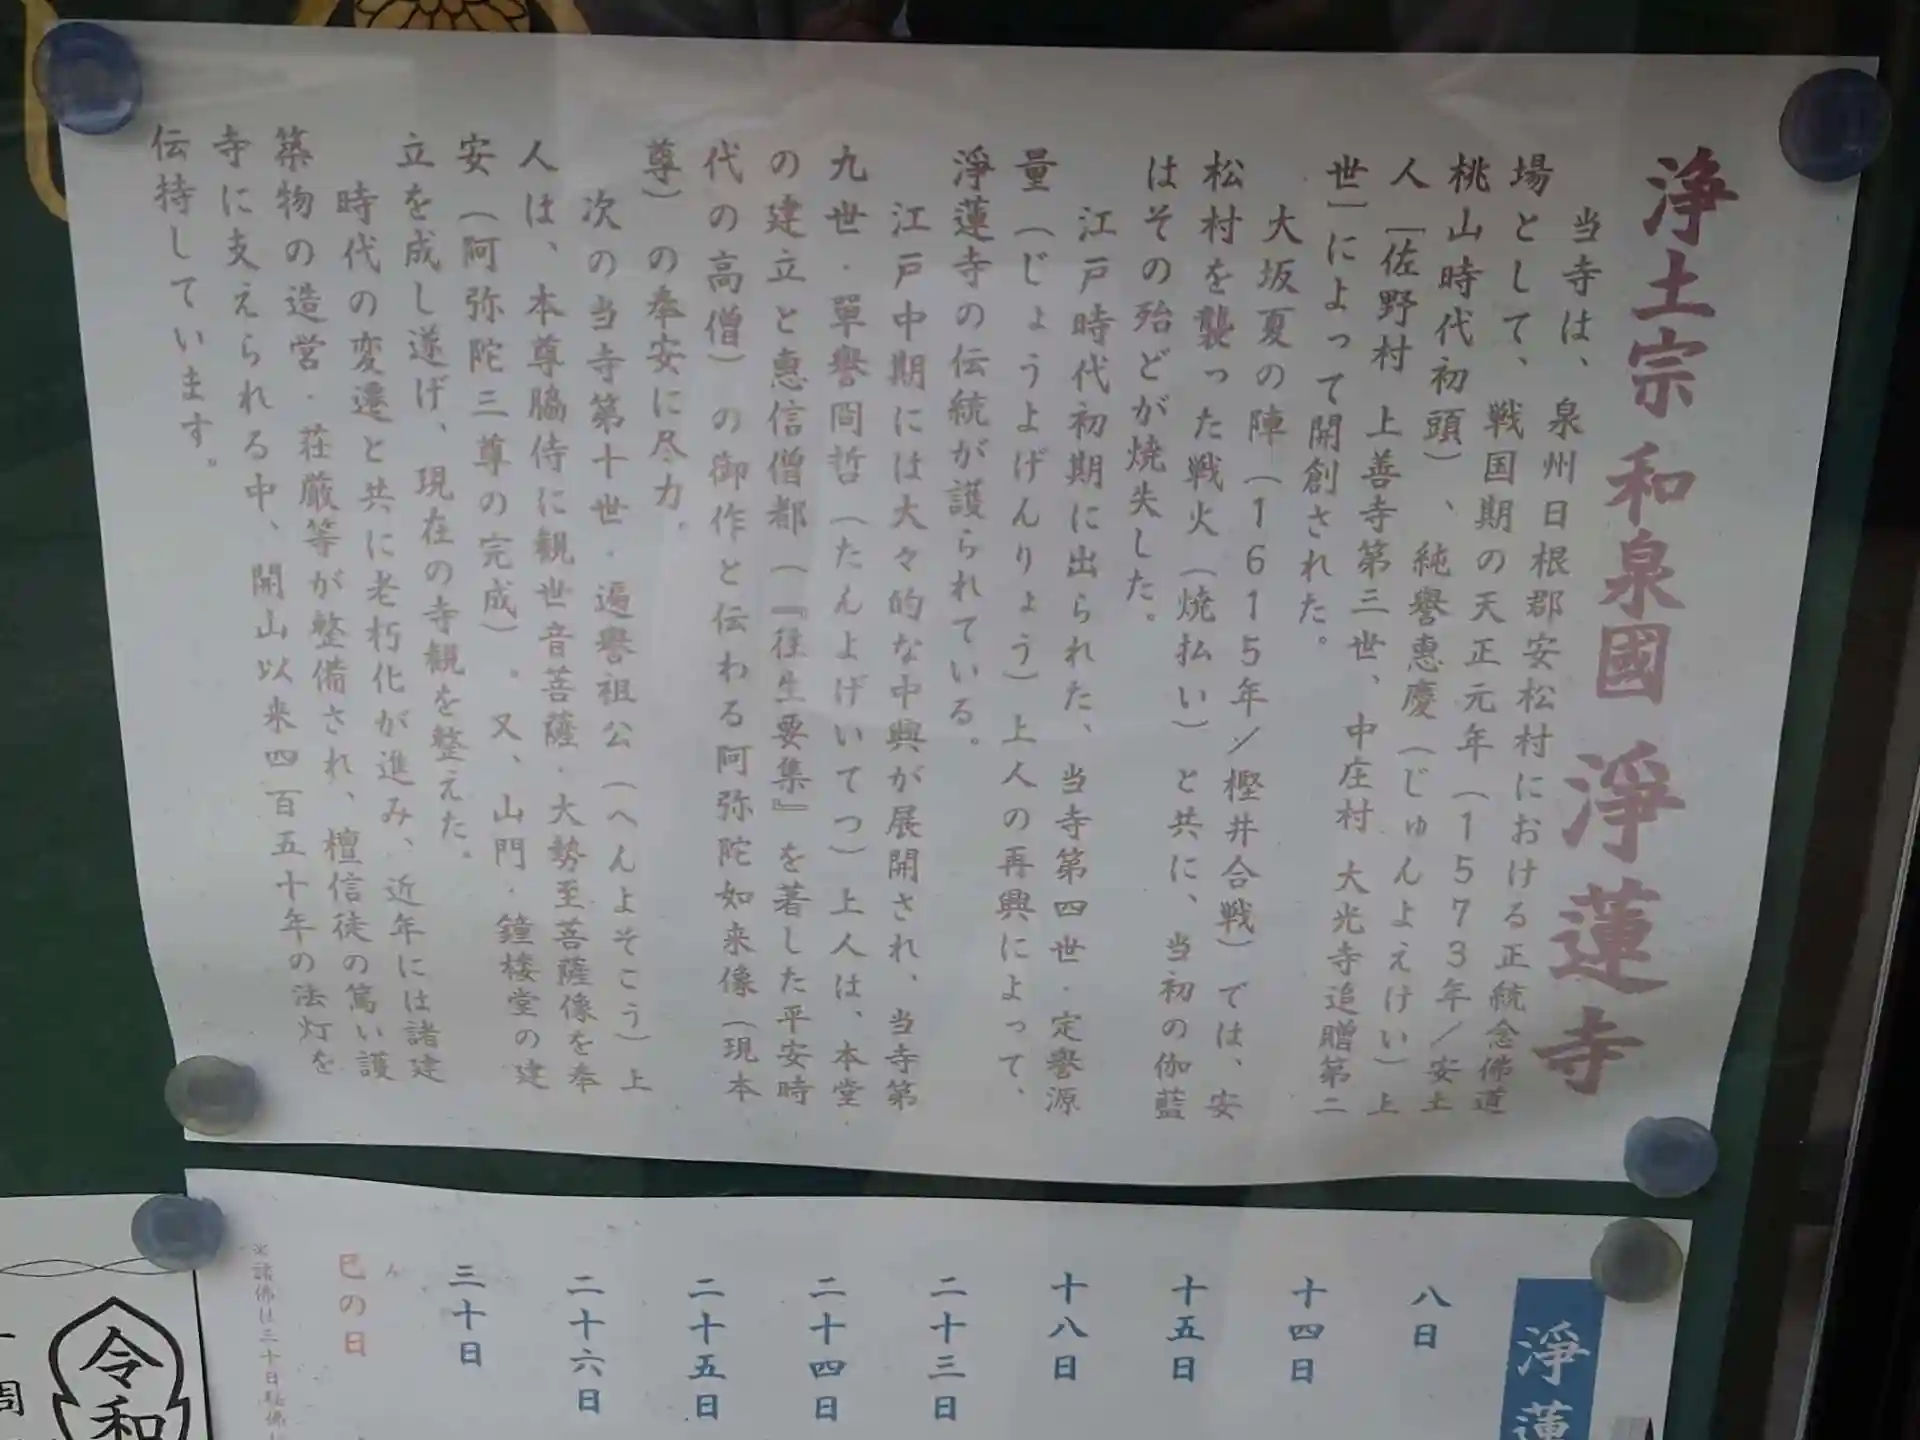 浄土宗 和泉國 淨蓮寺
当寺は、泉州日根郡安松村における正統念佛道
場として、戦国期の天正元年（１５７３年／安土
桃山時代初頭）、純譽惠慶（じゅんよえけい）上
人［佐野村 上善寺第三世、中庄村 大光寺追贈第二
世］によって開創された。
大坂夏の陣（１６１５年／樫井合戦）では、安
松村を襲った戦火（焼払い）と共に、当初の伽藍
はその殆どが焼失した。
江戸時代初期に出られた、当寺第四世・定譽源
量（じょうよげんりょう）上人の再興によって、
淨蓮寺の伝統が護られている。
江戸中期には大々的な中興が展開され、当寺第
九世・單譽誾哲（たんよげいてつ）上人は、本堂
の建立と惠信僧都（『往生要集』を著した平安時
代の高僧）の御作と伝わる阿弥陀如来像（現本
尊）の奉安に尽力。
次の当寺第十世・遍譽祖公（へんよそこう）上
人は、本尊脇侍に観世音菩薩・大勢至菩薩像を奉
安（阿弥陀三尊の完成）。又、山門・鐘楼堂の建
立を成し遂げ、現在の寺観を整えた。
時代の変遷と共に老朽化が進み、近年には諸建
築物の造営・荘厳等が整備され、檀信徒の篤い護
寺に支えられる中、開山以来四百五十年の法灯を
伝持しています。
淨蓮
八日
十四日
十五日
十八日
二十三日
二十四日
二十五日
二十六日
三十日
巳の日
※諸佛は三十日
令和